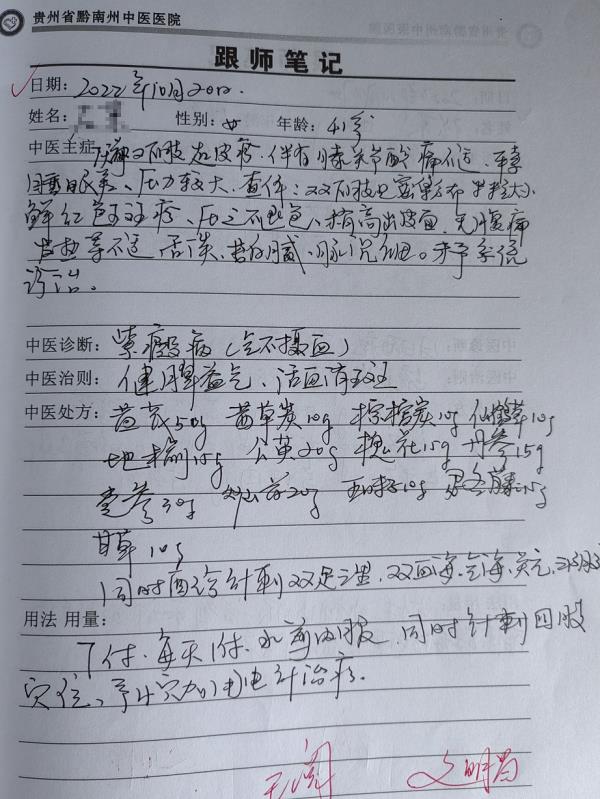 贵州省黔南州中医医院
跟师笔记
日期: 2022年10月20日.
姓名: 性别: 女 年龄: 41岁
中医主症: 双下肢起皮疹.伴有膝关节酸痛不适
眠差、压力较大.查体:双下肢密集分布
鲜红色斑疹、压之不退色、稍高出皮面.无腹痛
发热等不适 舌淡.苔白腻.脉沉细。未予系统
诊治.
中医诊断: 紫癜病(气不摄血)
中医治则: 健脾益气、活血消斑
中医处方: 黄芪50g 茜草炭10g 棕榈炭10g 仙鹤草10g
地榆15g 公英20g 槐花15g 丹参15g
党参30g 炒山药20g 五味子10g 鸡血藤15g
甘草10g
同时配合针刺双足三里.双血海.气海.关元.
用法 用量:
7付.每天1付.水煎内服.同时针刺四肢
穴位、予4穴加以电针治疗.